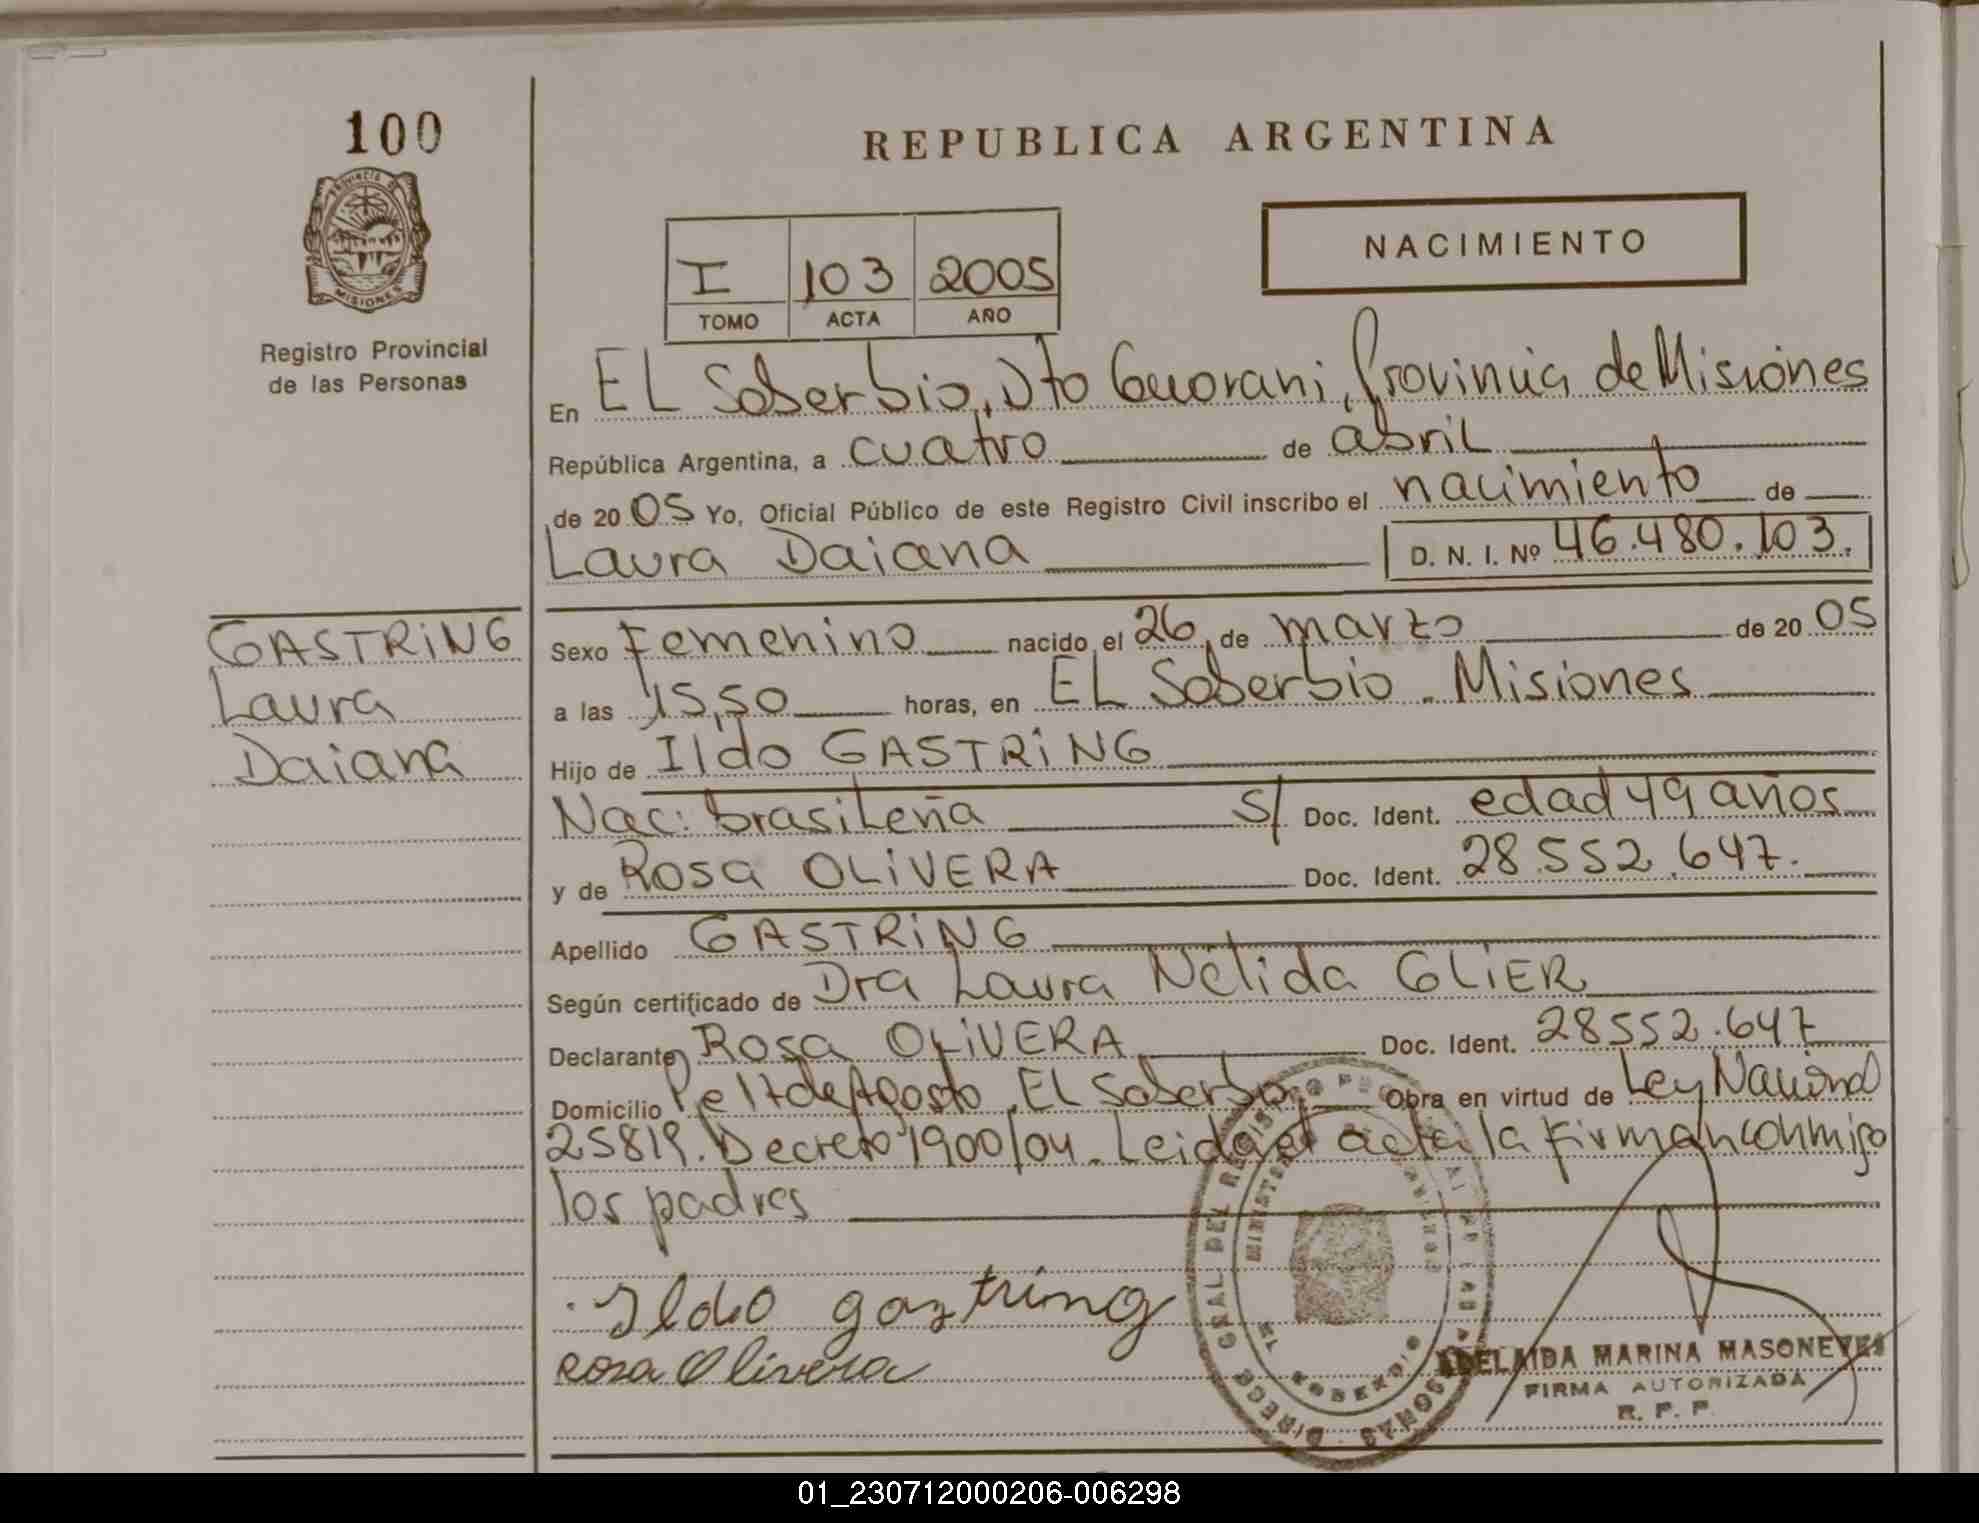 100
REPUBLICA ARGENTINA
PROVINCIA DE
MISIONES
Registro Provincial
de las Personas
I 103 2005
TOMO ACTA AÑO
NACIMIENTO
En EL Soberbio, Dto Guarani, Provincia de Misiones
República Argentina, a cuatro de abril
de 2005 Yo, Oficial Público de este Registro Civil inscribo el nacimiento de
Laura Daiana D. N. I. Nº 46.480.103.
GASTRiNG
Laura
Daiana
Sexo Femenino nacido el 26 de marzo de 2005
a las 15,50 horas, en EL Soberbio - Misiones
Hijo de Ildo GASTRiNG
Nac: brasileña S/ Doc. Ident. edad 49 años
y de Rosa OLiVERA Doc. Ident. 28.552.647.
Apellido GASTRiNG
Según certificado de Dra Laura Nélida GLiER
Declarante Rosa OLiVERA Doc. Ident. 28552.647
Domicilio de Agosto, EL Soberbio Obra en virtud de Ley Nacional
25819. Decreto 1900/04. Leida el acta la firman conmigo
los padres
Ildo gaztring
Rosa Olivera
DIRECC GRAL DEL REGIST
EL SOBERBIO
ADELAIDA MARINA MASONEVES
FIRMA AUTORIZADA
R. P. P.
01_230712000206-006298